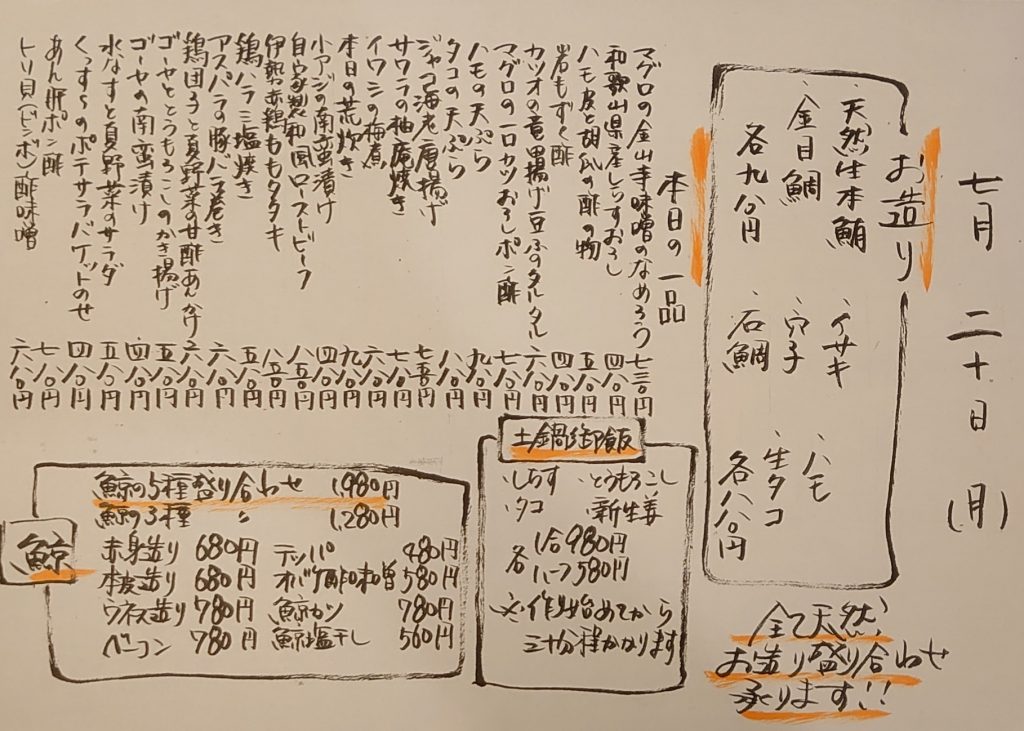 七月二十日(月)
お造り
・天然生本鮪
・金目鯛
各九八〇円
・イサキ
・穴子
・石鯛
・ハモ
・生タコ
各八八〇円
全て天然、
お造り盛り合わせ
承ります!!
本日の一品
マグロの金山寺味噌のなめろう 七三〇円
和歌山県産しらすおろし 四八〇円
ハモ皮と胡瓜の酢の物 五八〇円
岩もずく酢 四八〇円
カツオの竜田揚げ豆ふのタルタル 六八〇円
マグロの一口カツおろしポン酢 七八〇円
ハモの天ぷら 九八〇円
タコの天ぷら 八八〇円
ジャコ海老唐揚げ 七五〇円
サワラの柚庵焼き 七八〇円
イワシの梅煮 六八〇円
本日の荒炊き 九八〇円
小アジの南蛮漬け 四八〇円
自家製和風ローストビーフ 八五〇円
伊勢赤鶏ももタタキ 八五〇円
鶏ハラミ塩焼き 五八〇円
アスパラの豚バラ巻き 六八〇円
鶏団子と夏野菜の甘酢あんかけ 六八〇円
ゴーヤととうもろこしのかき揚げ 五八〇円
ゴーヤの南蛮漬け 四八〇円
水なすと夏野菜のサラダ 五八〇円
くっすらのポテサラバケットのせ 四八〇円
あん肝ポン酢 八八〇円
トリ貝(ビンボ)酢味噌 六八〇円
土鍋御飯
・しらす ・とうもろこし
・タコ ・新生姜
各 1合980円
ハーフ580円
※作り始めてから
三十分程かかります
鯨
鯨の5種盛り合わせ 1,980円
鯨の3種 〃 1,280円
赤身造り 680円
本皮造り 680円
ウネス造り 780円
ベーコン 780円
テッパ 480円
オバケ酢味噌 580円
鯨カツ 780円
鯨塩干し 560円